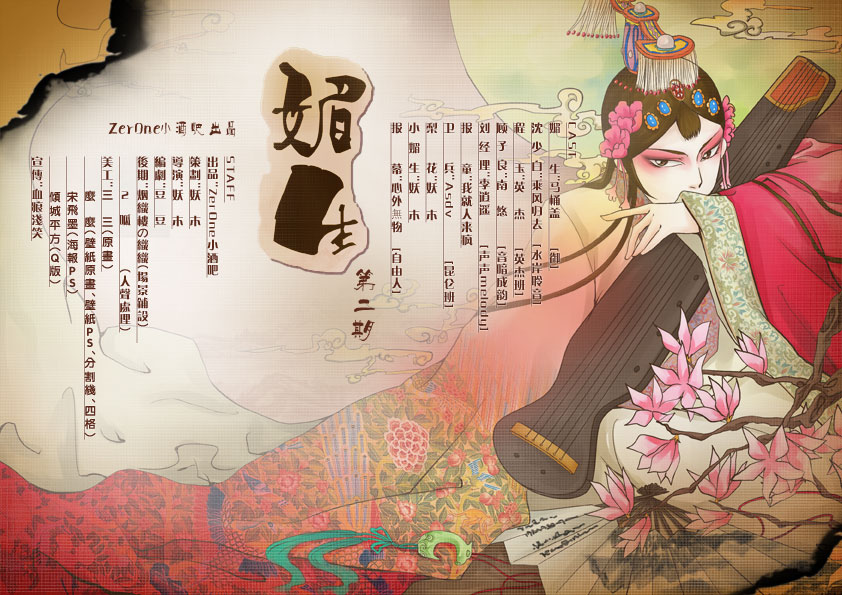 CASE
媚　生：马桶盖　[御]
沈少白：乘风归去　[水岸聆音]
程　玉：英　杰　[英杰班]
顾予良：南　悠　[音暗成韵]
刘经理：李逍遥　[声声melody]
报　童：我就人来疯
卫　兵：Asdv　[昆仑班]
梨　花：妖　木
小媚生：妖　木
报　幕：心外無物　[自由人]
媚生
第二期
ZerOne小酒吧 出品
STAFF
出品：ZerOne小酒吧
策劃：妖　木
導演：妖　木
編劇：豆　豆
後期：烟織樓の織織(場景鋪設)
2　呱　(人聲處理)
美工：三　三(原畫)
麼　麼(壁紙原畫、壁紙PS、分割綫、四格)
宋飛墨(海報PS)
傾城平方(Q版)
宣傳：血痕淺笑